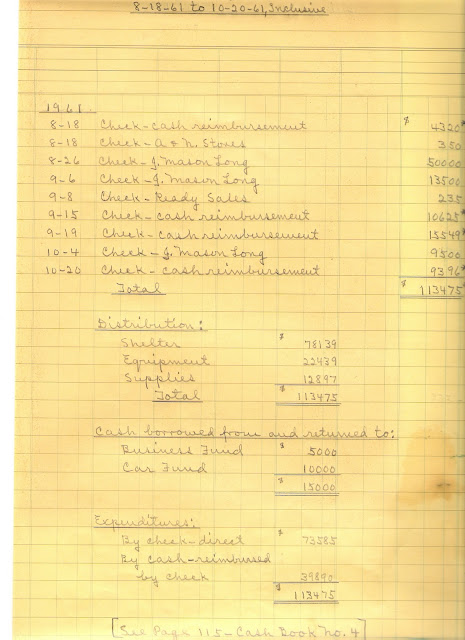 8-18-61 to 10-20-61, Inclusive
1961.
8-18 Check-cash reimbursement $ 4320*
8-18 Check-A & N. Stores 350
8-26 Check-J. Mason Long 50000
9-6 Check-J. Mason Long 13500
9-8 Check-Ready Sales 235
9-15 Check-cash reimbursement 10625*
9-19 Check-cash reimbursement 15549*
10-4 Check-J. Mason Long 9500
10-20 Check-cash reimbursement 9396*
Total $ 113475
Distribution:
Shelter $ 78139
Equipment 22439
Supplies 12897
Total $ 113475
Cash borrowed from and returned to:
Business Fund $ 5000
Car Fund 10000
$ 15000
Expenditures:
By check-direct $ 73585
By cash-reimbursed
by check 39890
$ 113475
[See Page 115-Cash Book no. 4]